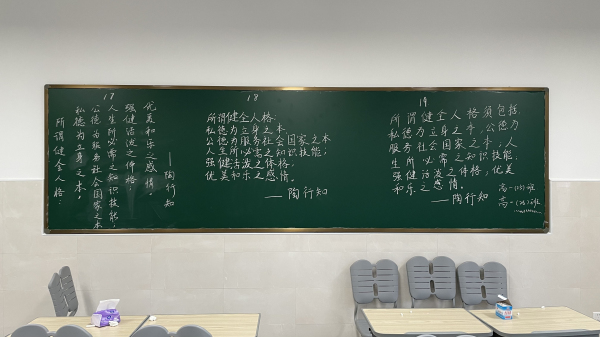 17
所谓健全人格：
私德为立身之本，
公德为服务社会国家之本
人生所必需之知识技能，
强健活泼之体格
优美和乐之感情。
——陶行知
18
所谓健全人格：
私德为立身之本
公德为服务社会国家之本
人生所必需之知识技能；
强健活泼之体格，
优美和乐之感情。
——陶行知
19
所谓健全人格须包括：
私德为立身之本，公德为
服务社会国家之本，人
生所必需之知识技能，
强健活泼之体格，优美
和乐之感情。
——陶行知
高一(13)班
高一(25)班